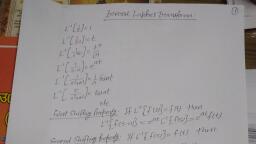 Inverse Laplace Transform
L⁻¹[1/s] = 1
L⁻¹[1/s²] = t
L⁻¹[
L⁻¹[ ] = e^at
L⁻¹[ ] = sinat
L⁻¹[ ] = cosat
etc
First Shifting Property: If L⁻¹[f(s)] = f(t) then
L⁻¹[f(s-a)] = e^at L⁻¹[f(s)] = e^at f(t)
Second Shifting Property: If L⁻¹[f(s)] = f(t) then